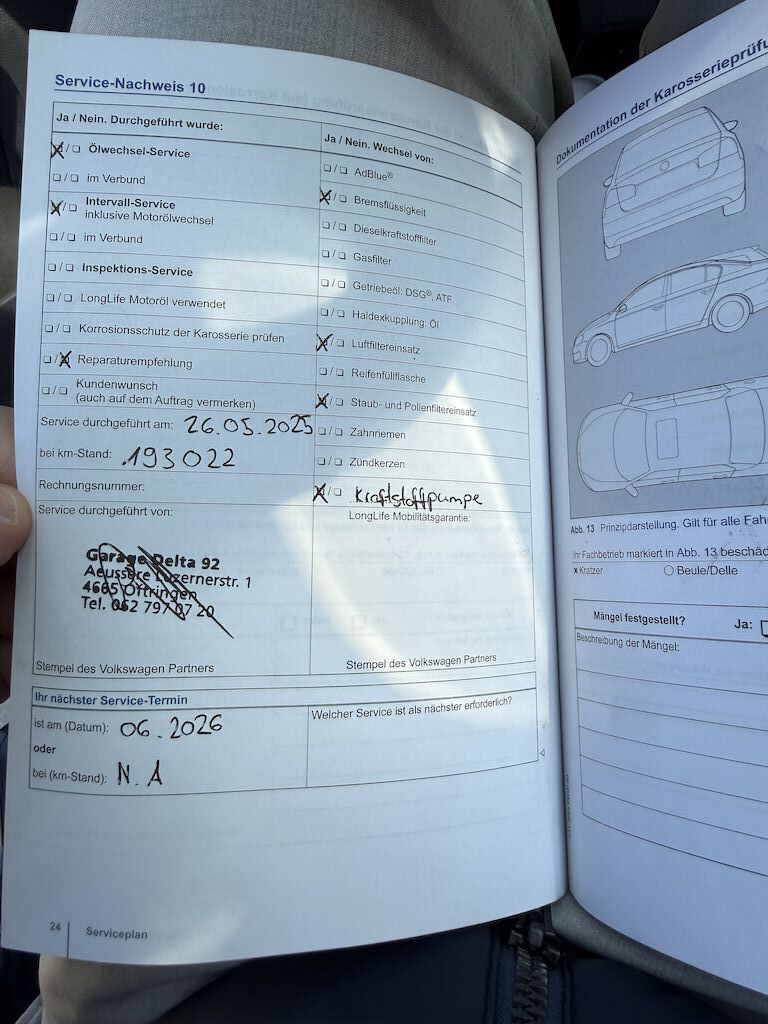 Service-Nachweis 10
Ja / Nein. Durchgeführt wurde:
☒/❏ Ölwechsel-Service
❏/❏ im Verbund
☒/❏ Intervall-Service
inklusive Motorölwechsel
❏/❏ im Verbund
❏/❏ Inspektions-Service
❏/❏ LongLife Motoröl verwendet
❏/❏ Korrosionsschutz der Karosserie prüfen
❏/☒ Reparaturempfehlung
❏/❏ Kundenwunsch
(auch auf dem Auftrag vermerken)
Service durchgeführt am: 26.05.2025
bei km-Stand: 193022
Rechnungsnummer:
Service durchgeführt von:
Garage Delta 92
Aeussere Luzernerstr. 1
4665 Oftringen
Tel. 062 797 07 20
Stempel des Volkswagen Partners
Ja / Nein. Wechsel von:
❏/❏ AdBlue®
☒/❏ Bremsflüssigkeit
❏/❏ Dieselkraftstofffilter
❏/❏ Gasfilter
❏/❏ Getriebeöl: DSG®, ATF
❏/❏ Haldexkupplung: Öl
☒/❏ Luftfiltereinsatz
❏/❏ Reifenfüllflasche
☒/❏ Staub- und Pollenfiltereinsatz
❏/❏ Zahnriemen
❏/❏ Zündkerzen
☒/❏ Kraftstoffpumpe
LongLife Mobilitätsgarantie:
Stempel des Volkswagen Partners
Ihr nächster Service-Termin
ist am (Datum): 06.2026
oder
bei (km-Stand): N.A
Welcher Service ist als nächster erforderlich?
24 Serviceplan
Dokumentation der Karosserieprüfu
Abb. 13 Prinzipdarstellung. Gilt für alle Fah
Ihr Fachbetrieb markiert in Abb. 13 beschäd
x Kratzer ○ Beule/Delle
Mängel festgestellt? Ja:
Beschreibung der Mängel: